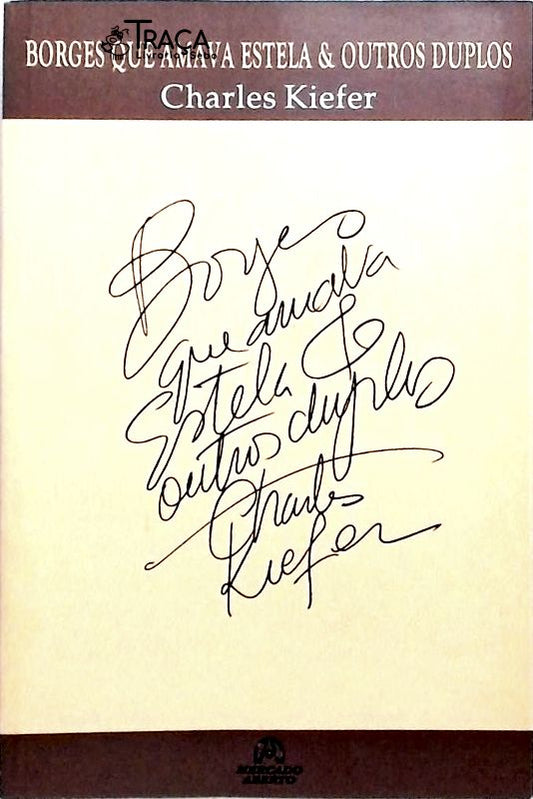 TRAÇA
Livraria e Sebo
BORGES QUE AMAVA ESTELA & OUTROS DUPLOS
Charles Kiefer
Borges
que amava
Estela &
outros duplos
Charles
Kiefer
MERCADO
ABERTO